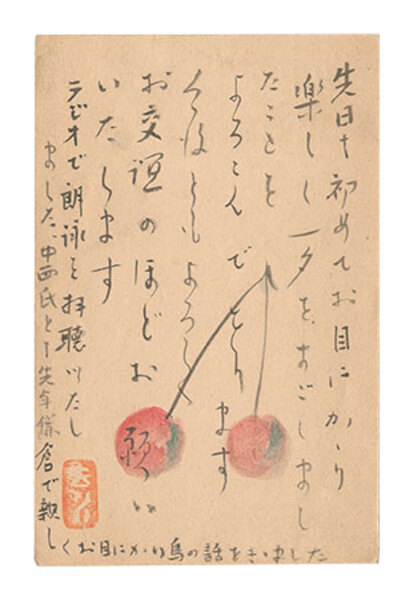 先日は初めてお目にかゝり
楽しい一夕をすごしまし
たことを
よろこんでをります
今後ともよろしく
お交誼のほどお願ひ
いたします
ラジオで朗詠を拝聴いたし
ました、中西氏とは先年鎌倉で親し
くお目にかゝり鳥の話をきゝました